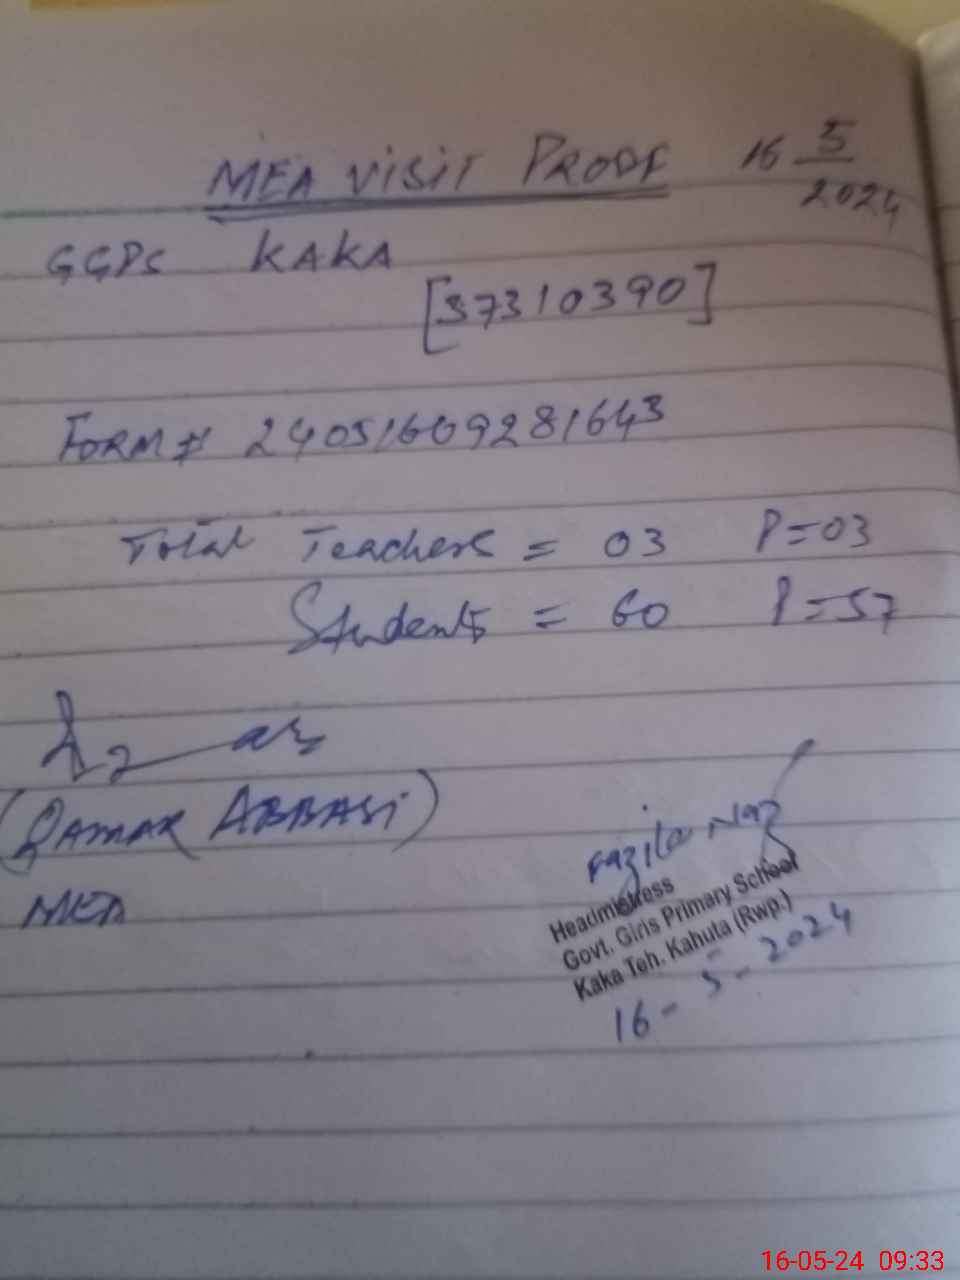 MEA VISIT PROOF 16 5/2024
GGPS KAKA
[37310390]
FORM # 24051609281643
Total Teachers = 03 P=03
Students = 60 P=57
(QAMAR ABBASI)
MEA
Fazila Naz
Headmistress
Govt. Girls Primary School
Kaka Teh. Kahuta (Rwp.)
16-5-2024
16-05-24 09:33